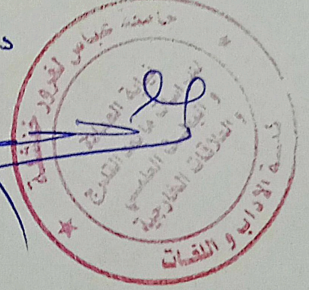 جامعة عباس لغرور خنشلة
كلية الآداب و اللغات
نيابة العمادة
لما بعد التدرج
و البحث العلمي
و العلاقات الخارجية